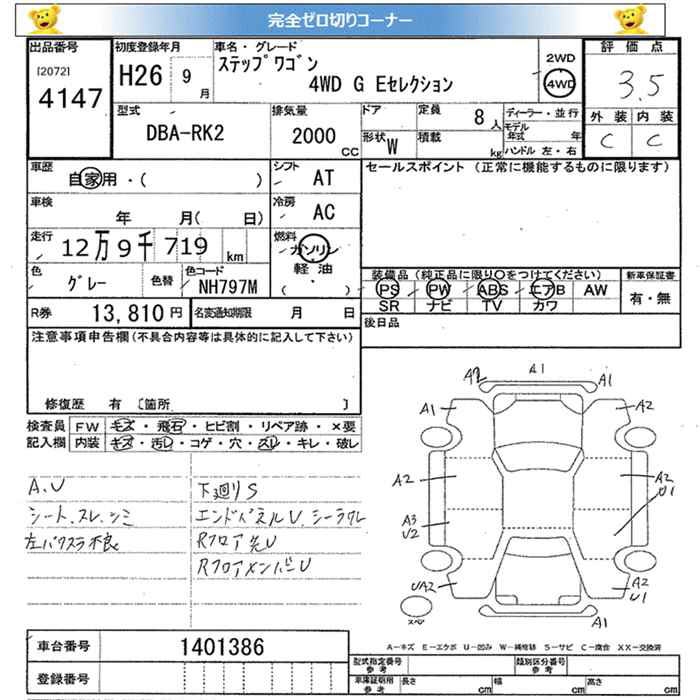 完全ゼロ切りコーナー
出品番号 [2072] 4147
初度登録年月 H26 9月
車名・グレード ステップワゴン 4WD G Eセレクション
2WD 4WD
評価点 3.5
外装 内装
C C
型式 DBA-RK2
排気量 2000 CC
ドア 形状 W
定員 8人
積載 kg
ディーラー・並行
モデル年式 年
ハンドル 左・右
車歴 自家用・( )
シフト AT
セールスポイント (正常に機能するものに限ります)
車検 年 月( 日)
冷房 AC
走行 12万9千719 km
燃料 ガソリン 軽油 ( )
色 グレー 色替 色コード NH797M
装備品(純正品に限り○をつけてください)
新車保証書 有・無
PS PW ABS エアB AW
SR ナビ TV カワ
R券 13,810円
名変通知期限 月 日
後日品
注意事項申告欄(不具合内容等は具体的に記入して下さい)
修復歴 有 〔箇所 〕
検査員記入欄
FW キズ・飛石・ヒビ割・リペア跡・×要
内装 キズ・汚レ・コゲ・穴・スレ・キレ・破レ
A.U
シート.スレ.シミ
下廻りS
エンドパネルU.シーラクレ
Rフロア先U
RフロアメンバーU
A2 A1 A1
A1 A2
A2 A2 U1
A3 U2
UA2 A2 U1
A1
スペア
車台番号 1401386
登録番号
A-キズ E-エクボ U-凹み W-補修跡 S-サビ C-腐合 XX-交換済
型式指定番号 参考
類別区分番号 参考
車庫証明用 参考 長さ cm 幅 cm 高さ cm